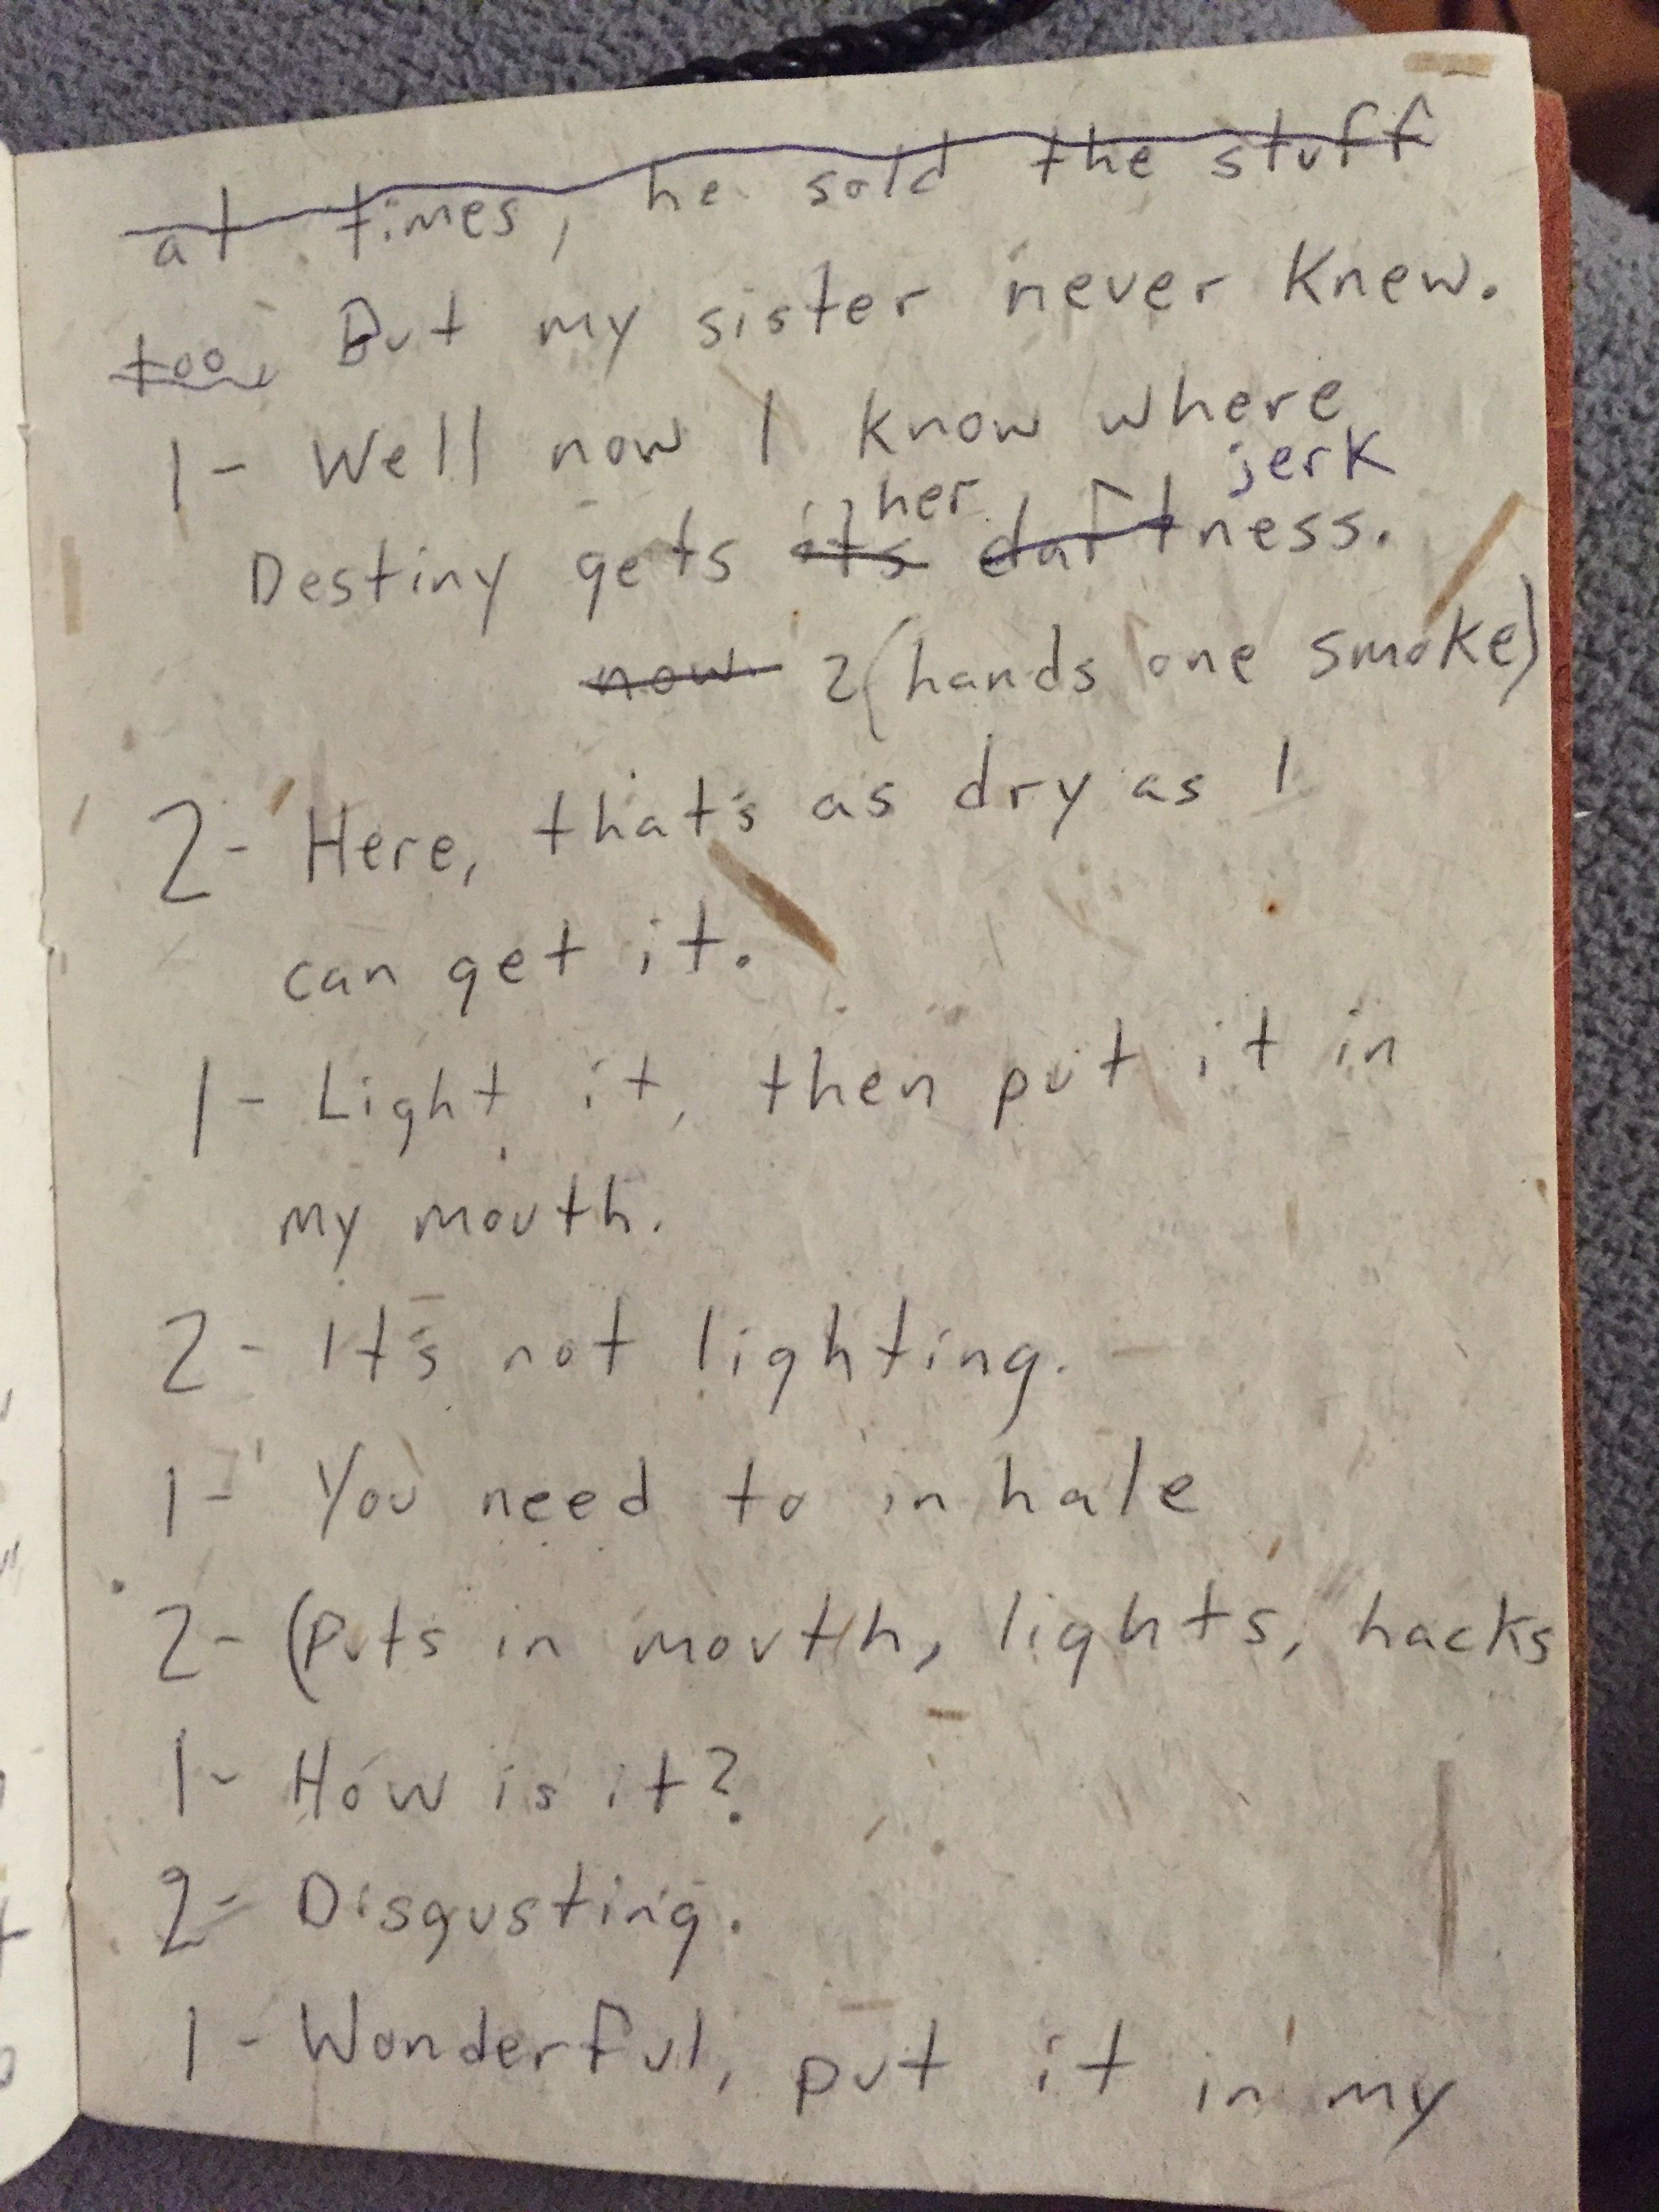 at times, he sold the stuff
too. But my sister never knew.
1- Well now I know where
her jerk
Destiny gets its daftness.
now. 2(hands one smoke)
2- Here, that's as dry as I
can get it.
1- Light it, then put it in
my mouth.
2- It's not lighting.
1- You need to inhale
2- (Puts in mouth, lights, hacks
1- How is it?
2- Disgusting.
1- Wonderful, put it in my